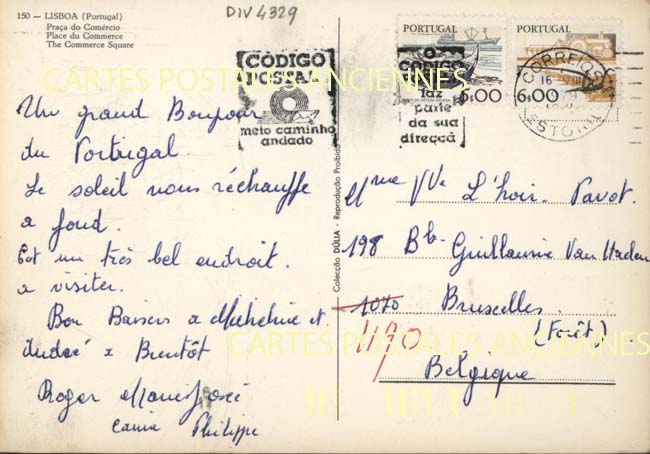 150 — LISBOA (Portugal)
Praça do Comércio
Place du Commerce
The Commerce Square
DIV 4329
CARTES POSTALES ANCIENNES
CÓDIGO
POSTAL
meio caminho
andado
PORTUGAL
6$00
O
CÓDIGO
faz
parte
da sua
direcçã
PORTUGAL
6$00
CORREIOS
16
ESTORIL
Un grand Bonjour
du Portugal.
Le soleil nous réchauffe
a fond.
Est un très bel endroit.
a visiter.
Bon Baisers a Micheline et
André x Bientôt
Roger
Philippe
Colecção DÚLIA - Reprodução Proibida
Mme Vve L'hoir. Pavot.
198 Guillaume Van
1070 Bruxelles.
1190 (Forêt)
Belgique
CARTES POSTALES ANCIENNES